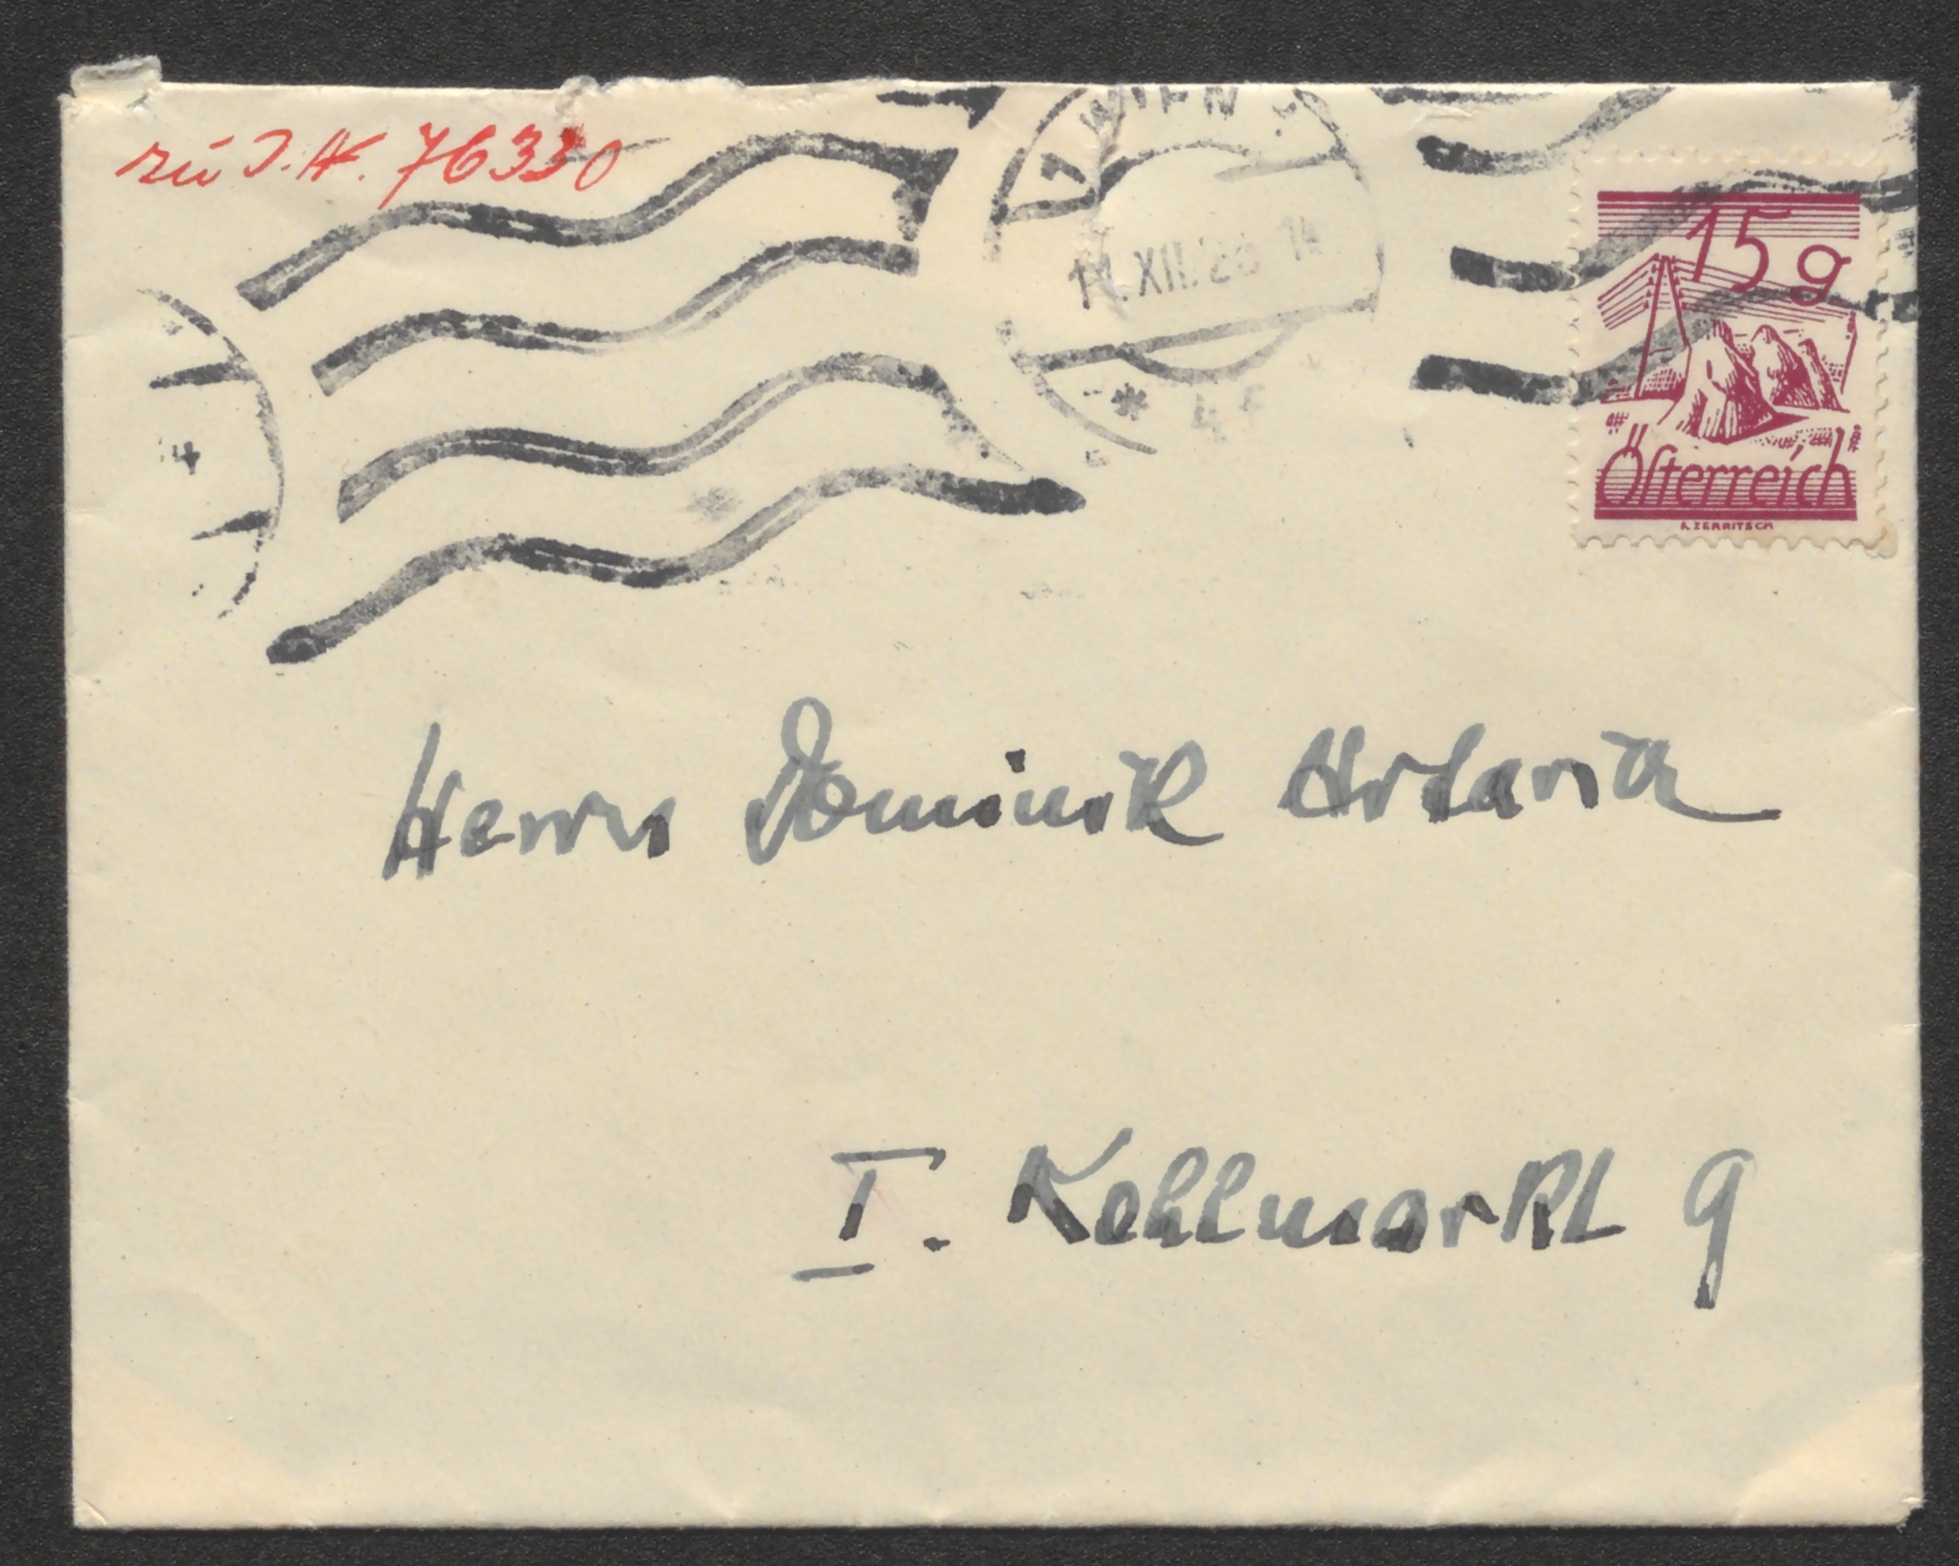 zu I.N. 76330
1 WIEN 1
XII. 28 14
15 g
Österreich
Herrn Dominik Artaria
I. Kohlmarkt 9